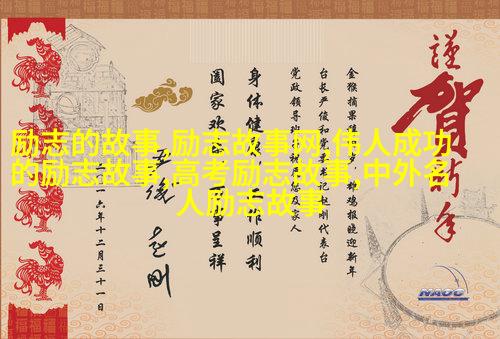 励志的故事,励志故事网,伟人成功
的励志故事,高考励志故事,中外名
人励志故事
謹
賀
新年
金猴摘果 步,彩鸡报晓迎新年
台长严俊和党委书记赵刚代表台
党政领导班子 您及家人
身体健康 工作顺利
阖家欢乐 万事呈祥
严俊 赵刚
一六年十二月三十一日
NAOC